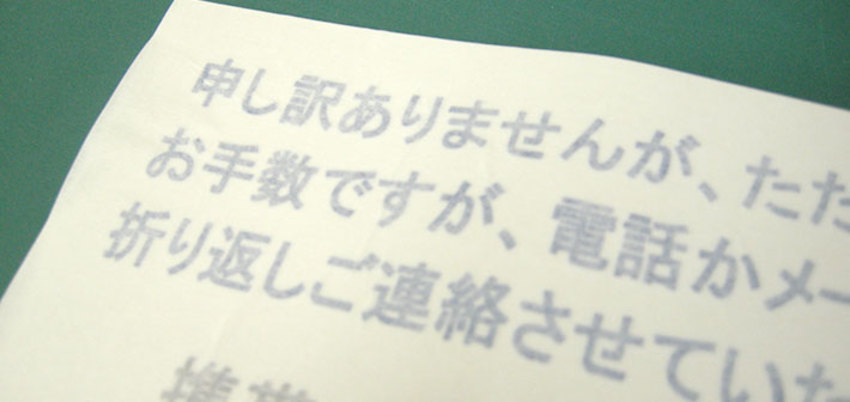 申し訳ありませんが、ただ
お手数ですが、電話かメー
折り返しご連絡させていた
携帯